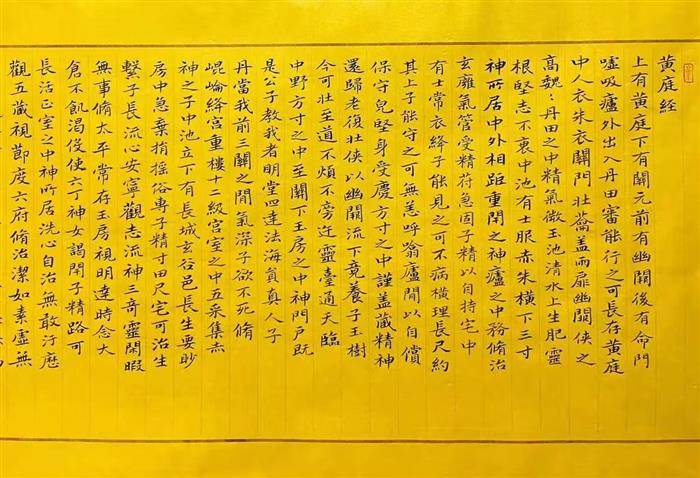 黄庭経
上有黄庭下有關元前有幽闕後有命門
嘘吸廬外出入丹田審能行之可長存黄庭
中人衣朱衣關門壮蘥蓋兩扉幽闕侠之
髙魏魏丹田之中精氣微玉池清水上生肥靈
根堅志不衰中池有士服赤朱横下三寸
神所居中外相距重閇之神廬之中務脩治
玄𢊍氣管受精苻急固子精以自持宅中
有士常衣絳子能見之可不病横理長尺約
其上子能守之可無恙呼噏廬閒以自償
保守皃堅身受慶方寸之中謹盖藏精神
還歸老復壮侠以幽闕流下竟養子玉樹
令可壮至道不煩不旁迕靈臺通天臨
中野方寸之中至關下玉房之中神門戸既
是公子教我者明堂四達法海員真人子
丹當我前三關之閒氣深子欲不死脩
崐崘絳宫重樓十二級宫室之中五采集赤
神之子中池立下有長城玄谷邑長生要眇
房中急棄捐摇俗專子精寸田尺宅可治生
繫子長流心安寧觀志流神三竒靈閑暇
無事脩太平常存玉房視明達時念大
倉不飢渇伇使六丁神女謁閇子精路可
長活正室之中神所居洗心自治無敢汙歴
觀五藏視節度六府脩治潔如素虚無